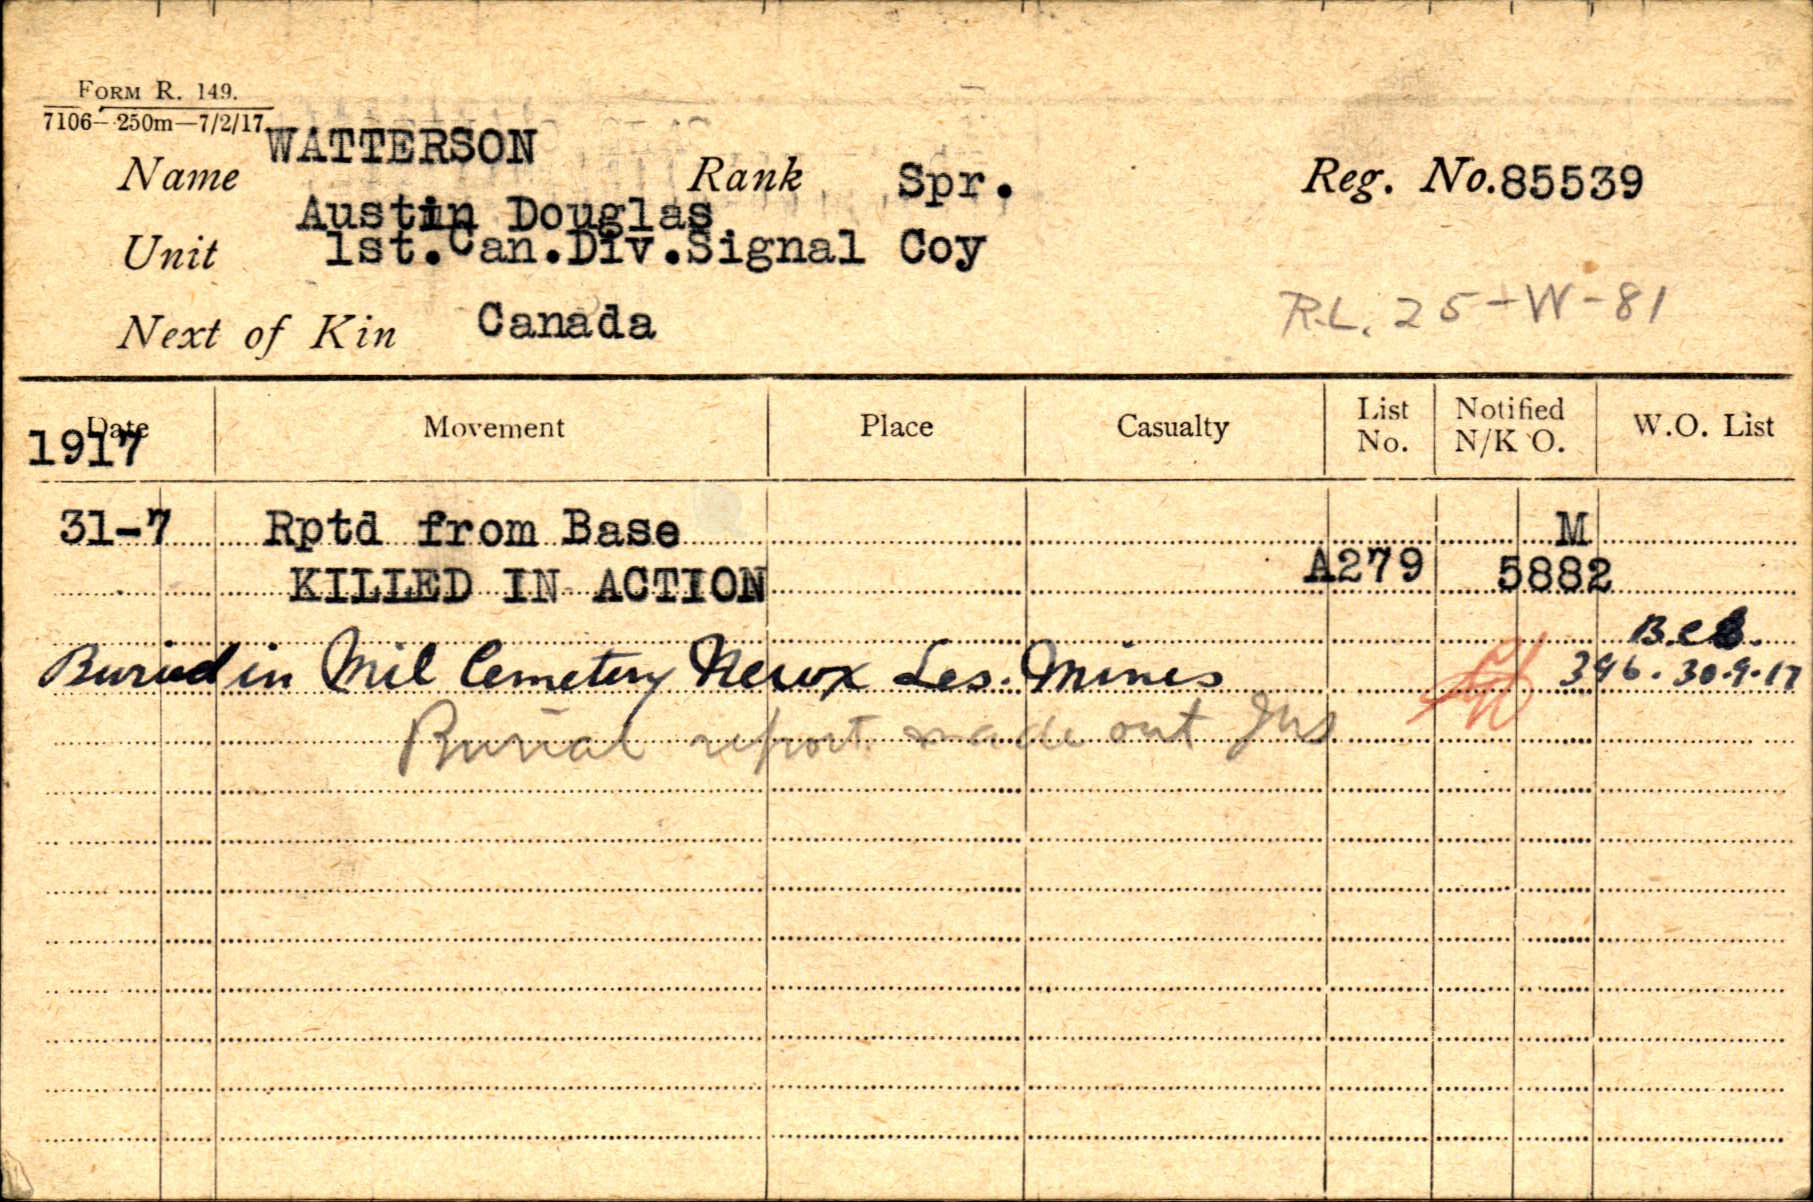 FORM R. 149.
7106—250m—7/2/17.
Name WATTERSON Rank Spr. Reg. No. 85539
Austin Douglas
Unit 1st.Can.Div.Signal Coy
R.L. 25-W-81
Next of Kin Canada
Date Movement Place Casualty List No. Notified N/K O. W.O. List
1917
31-7 Rptd from Base M
KILLED IN ACTION A279 5882
Buried in Mil Cemetery Neux Les. Mines 396. 30.9.17
Burial report made out